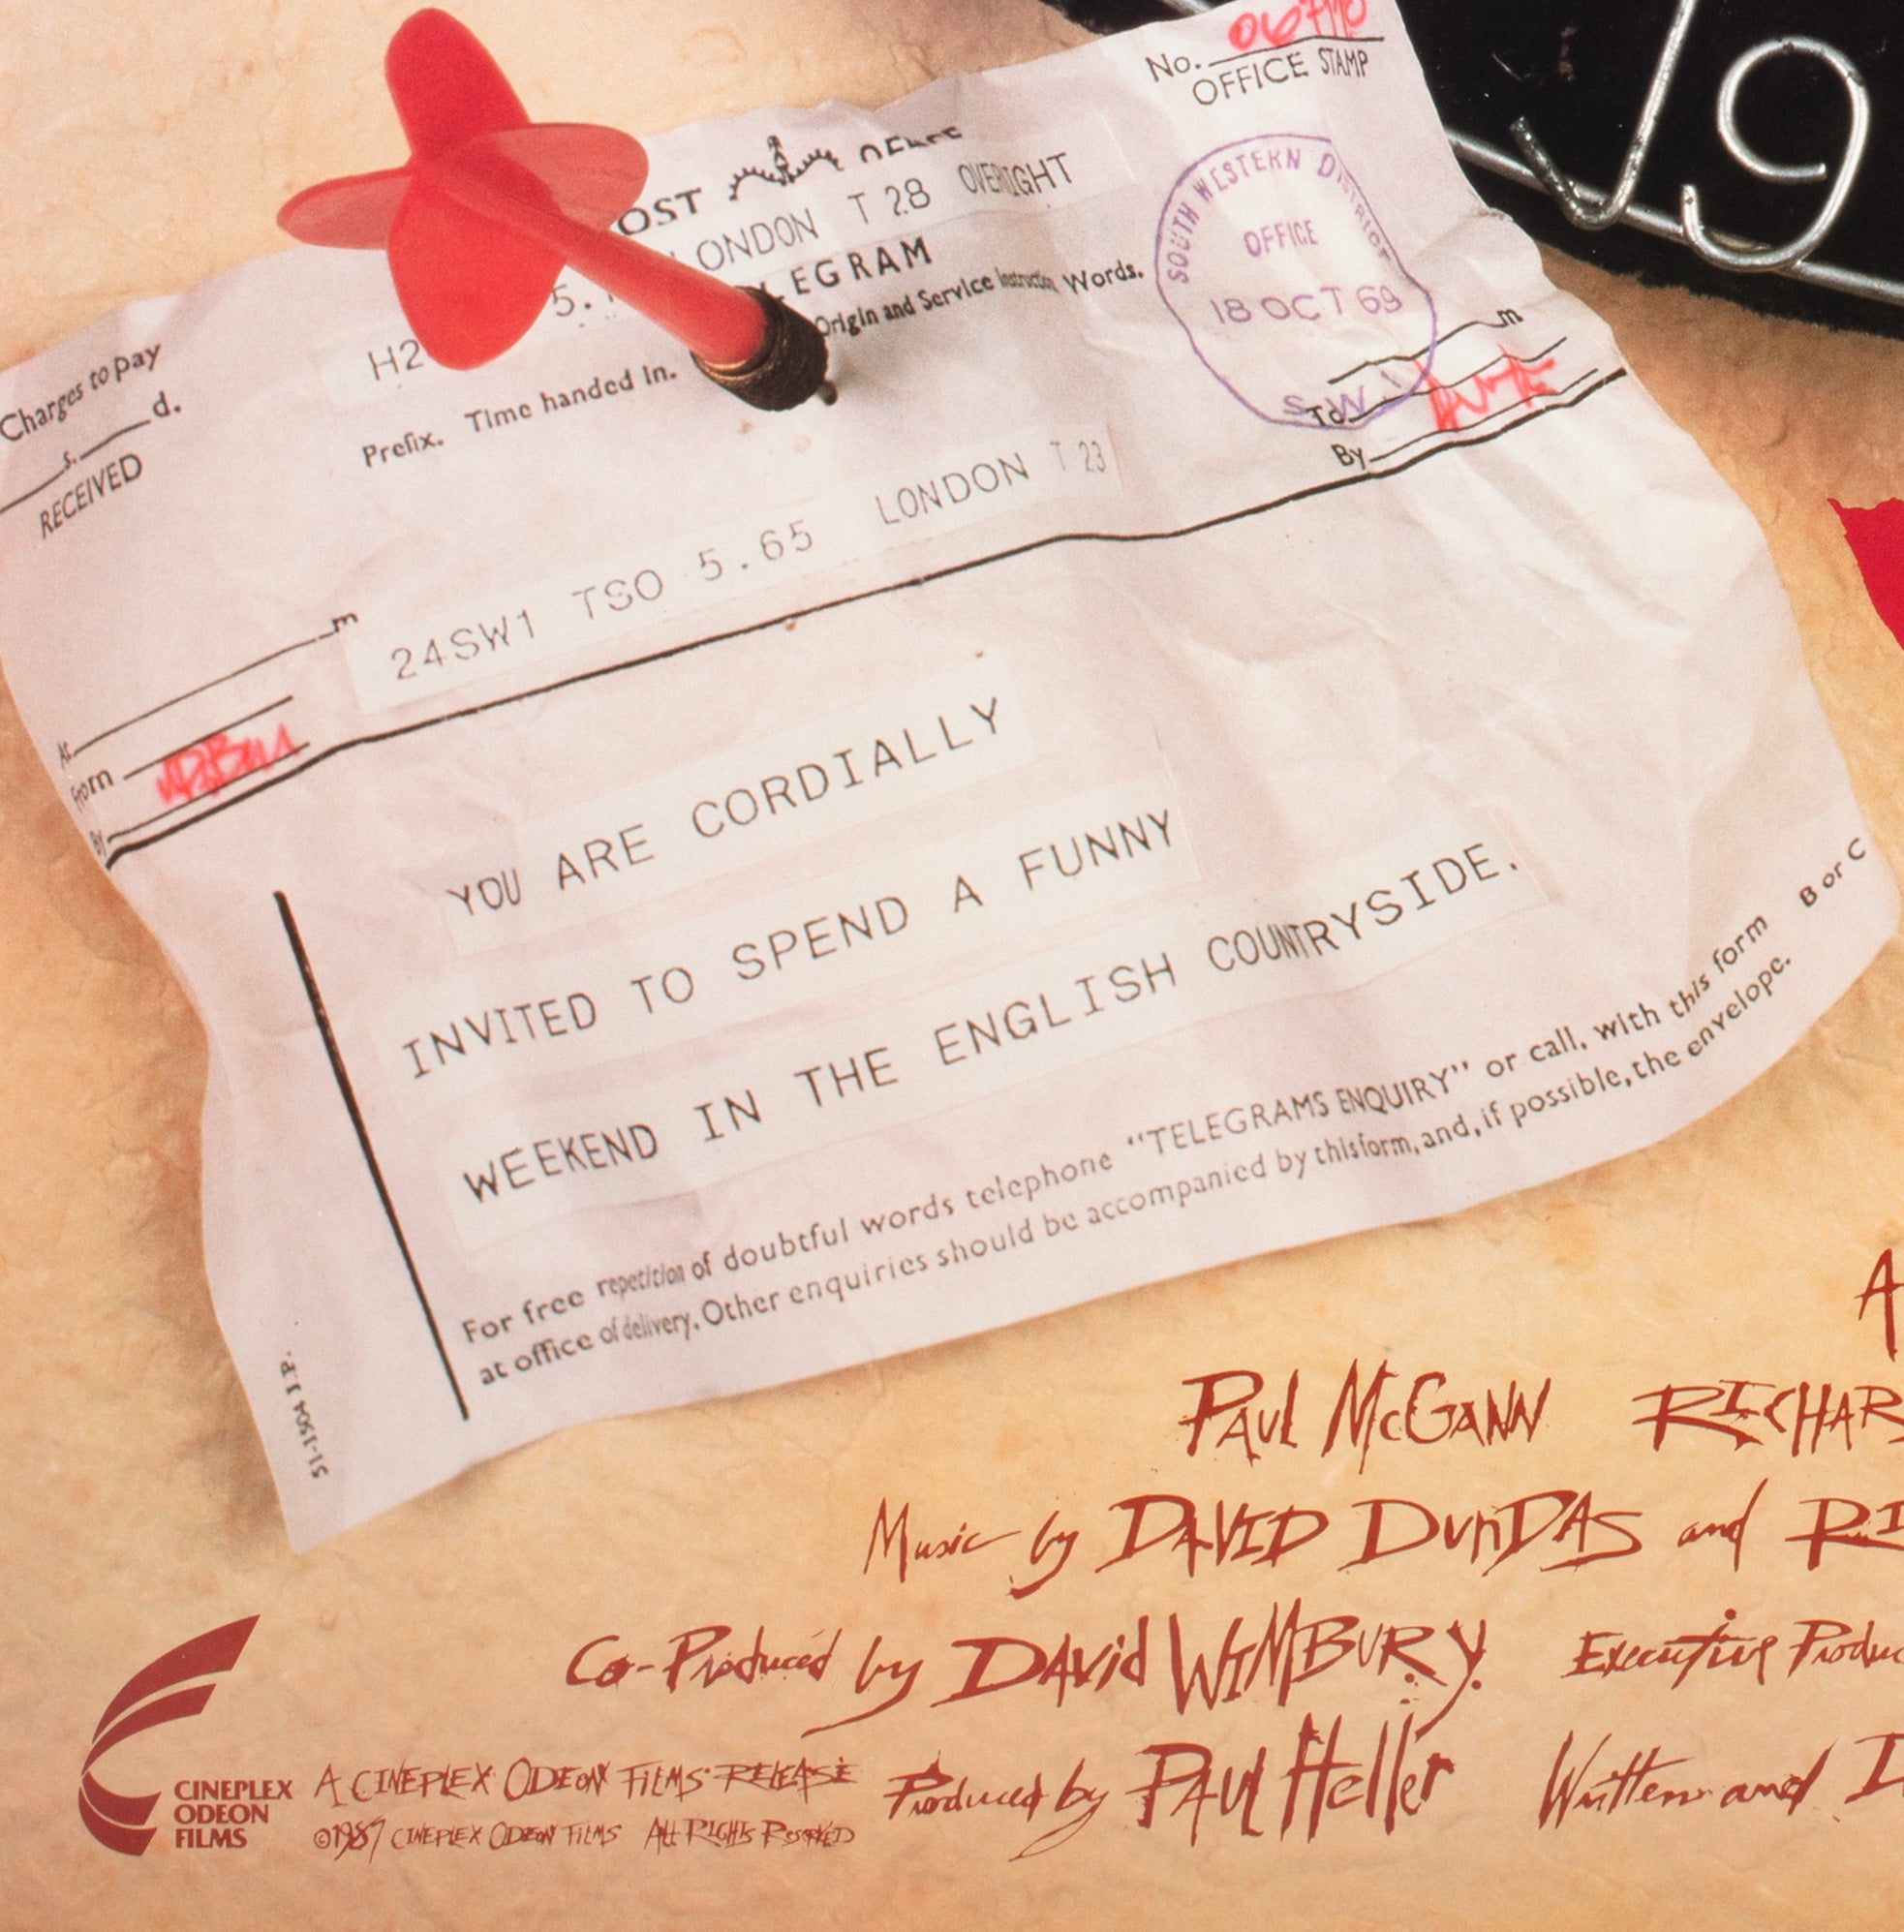 No. 067110
OFFICE STAMP
OST OFFICE
LONDON T 28 OVERIGHT
H2 5.
EGRAM
Charges to pay
s. d.
RECEIVED
Prefix. Time handed in. Origin and Service Instruction Words.
SOUTH WESTERN DISTRICT
OFFICE
18 OCT 69
S.W.1
m
To
By
24SW1 TSO 5.65 LONDON T 23
m
At
From
By
YOU ARE CORDIALLY
INVITED TO SPEND A FUNNY
WEEKEND IN THE ENGLISH COUNTRYSIDE.
For free repetition of doubtful words telephone "TELEGRAMS ENQUIRY" or call, with this form
at office of delivery. Other enquiries should be accompanied by this form, and, if possible, the envelope.
B or C
51-1504 J.P.
A
PAUL McGANN RICHAR
Music by DAVID DUNDAS and RI
Co-Produced by DAVid WIMBURY. Executive Produc
Produced by PAUL Heller Written and D
CINEPLEX
ODEON
FILMS
A CINEPLEX ODEON FILMS RELEASE
©1987 CINEPLEX ODEON FILMS ALL RIGHTS RESERVED